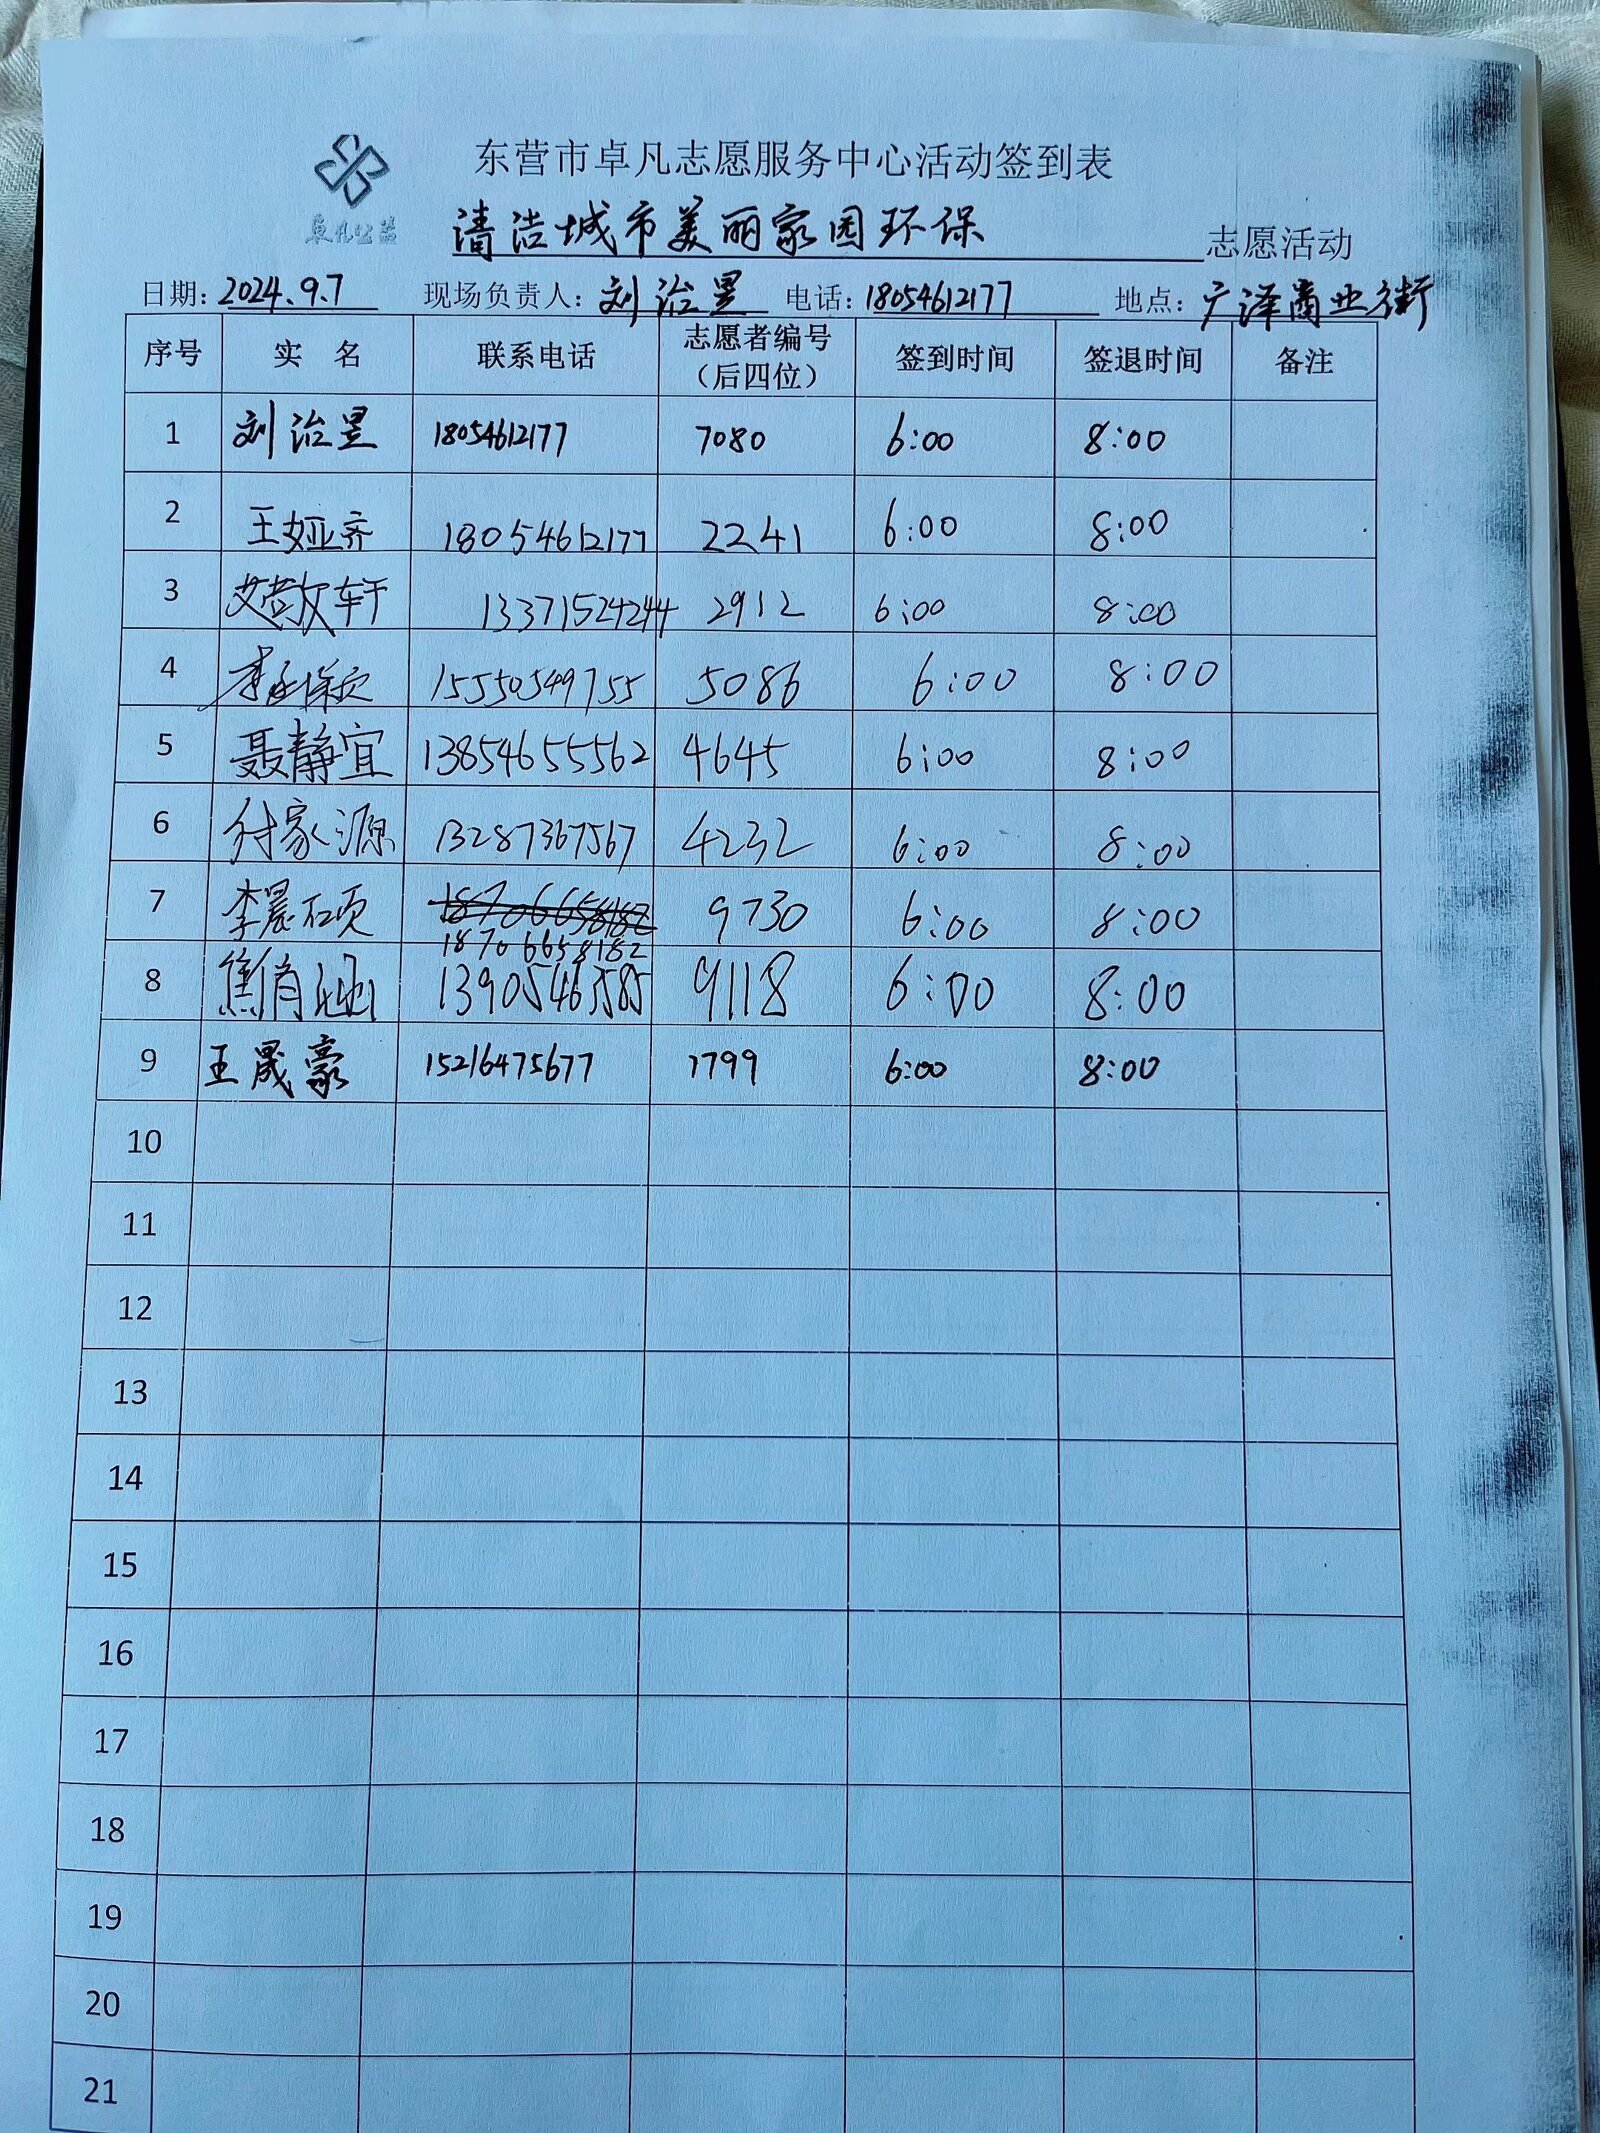 东营市卓凡志愿服务中心活动签到表
卓凡公益
清洁城市美丽家园环保 志愿活动
日期：2024.9.7 现场负责人：刘治昱 电话：18054612177 地点：广泽商业街
序号 实 名 联系电话 志愿者编号（后四位） 签到时间 签退时间 备注
1 刘治昱 18054612177 7080 6:00 8:00
2 王娅齐 18054612177 2241 6:00 8:00
3 艾敬轩 13371524244 2912 6:00 8:00
4 李 15550549755 5086 6:00 8:00
5 聂静宜 13854655562 4645 6:00 8:00
6 付家源 13287367567 4232 6:00 8:00
7 李晨硕 18706658182 9730 6:00 8:00
18706658182
8 焦肖涵 13905463585 9118 6:00 8:00
9 王晟豪 15216475677 1799 6:00 8:00
10
11
12
13
14
15
16
17
18
19
20
21